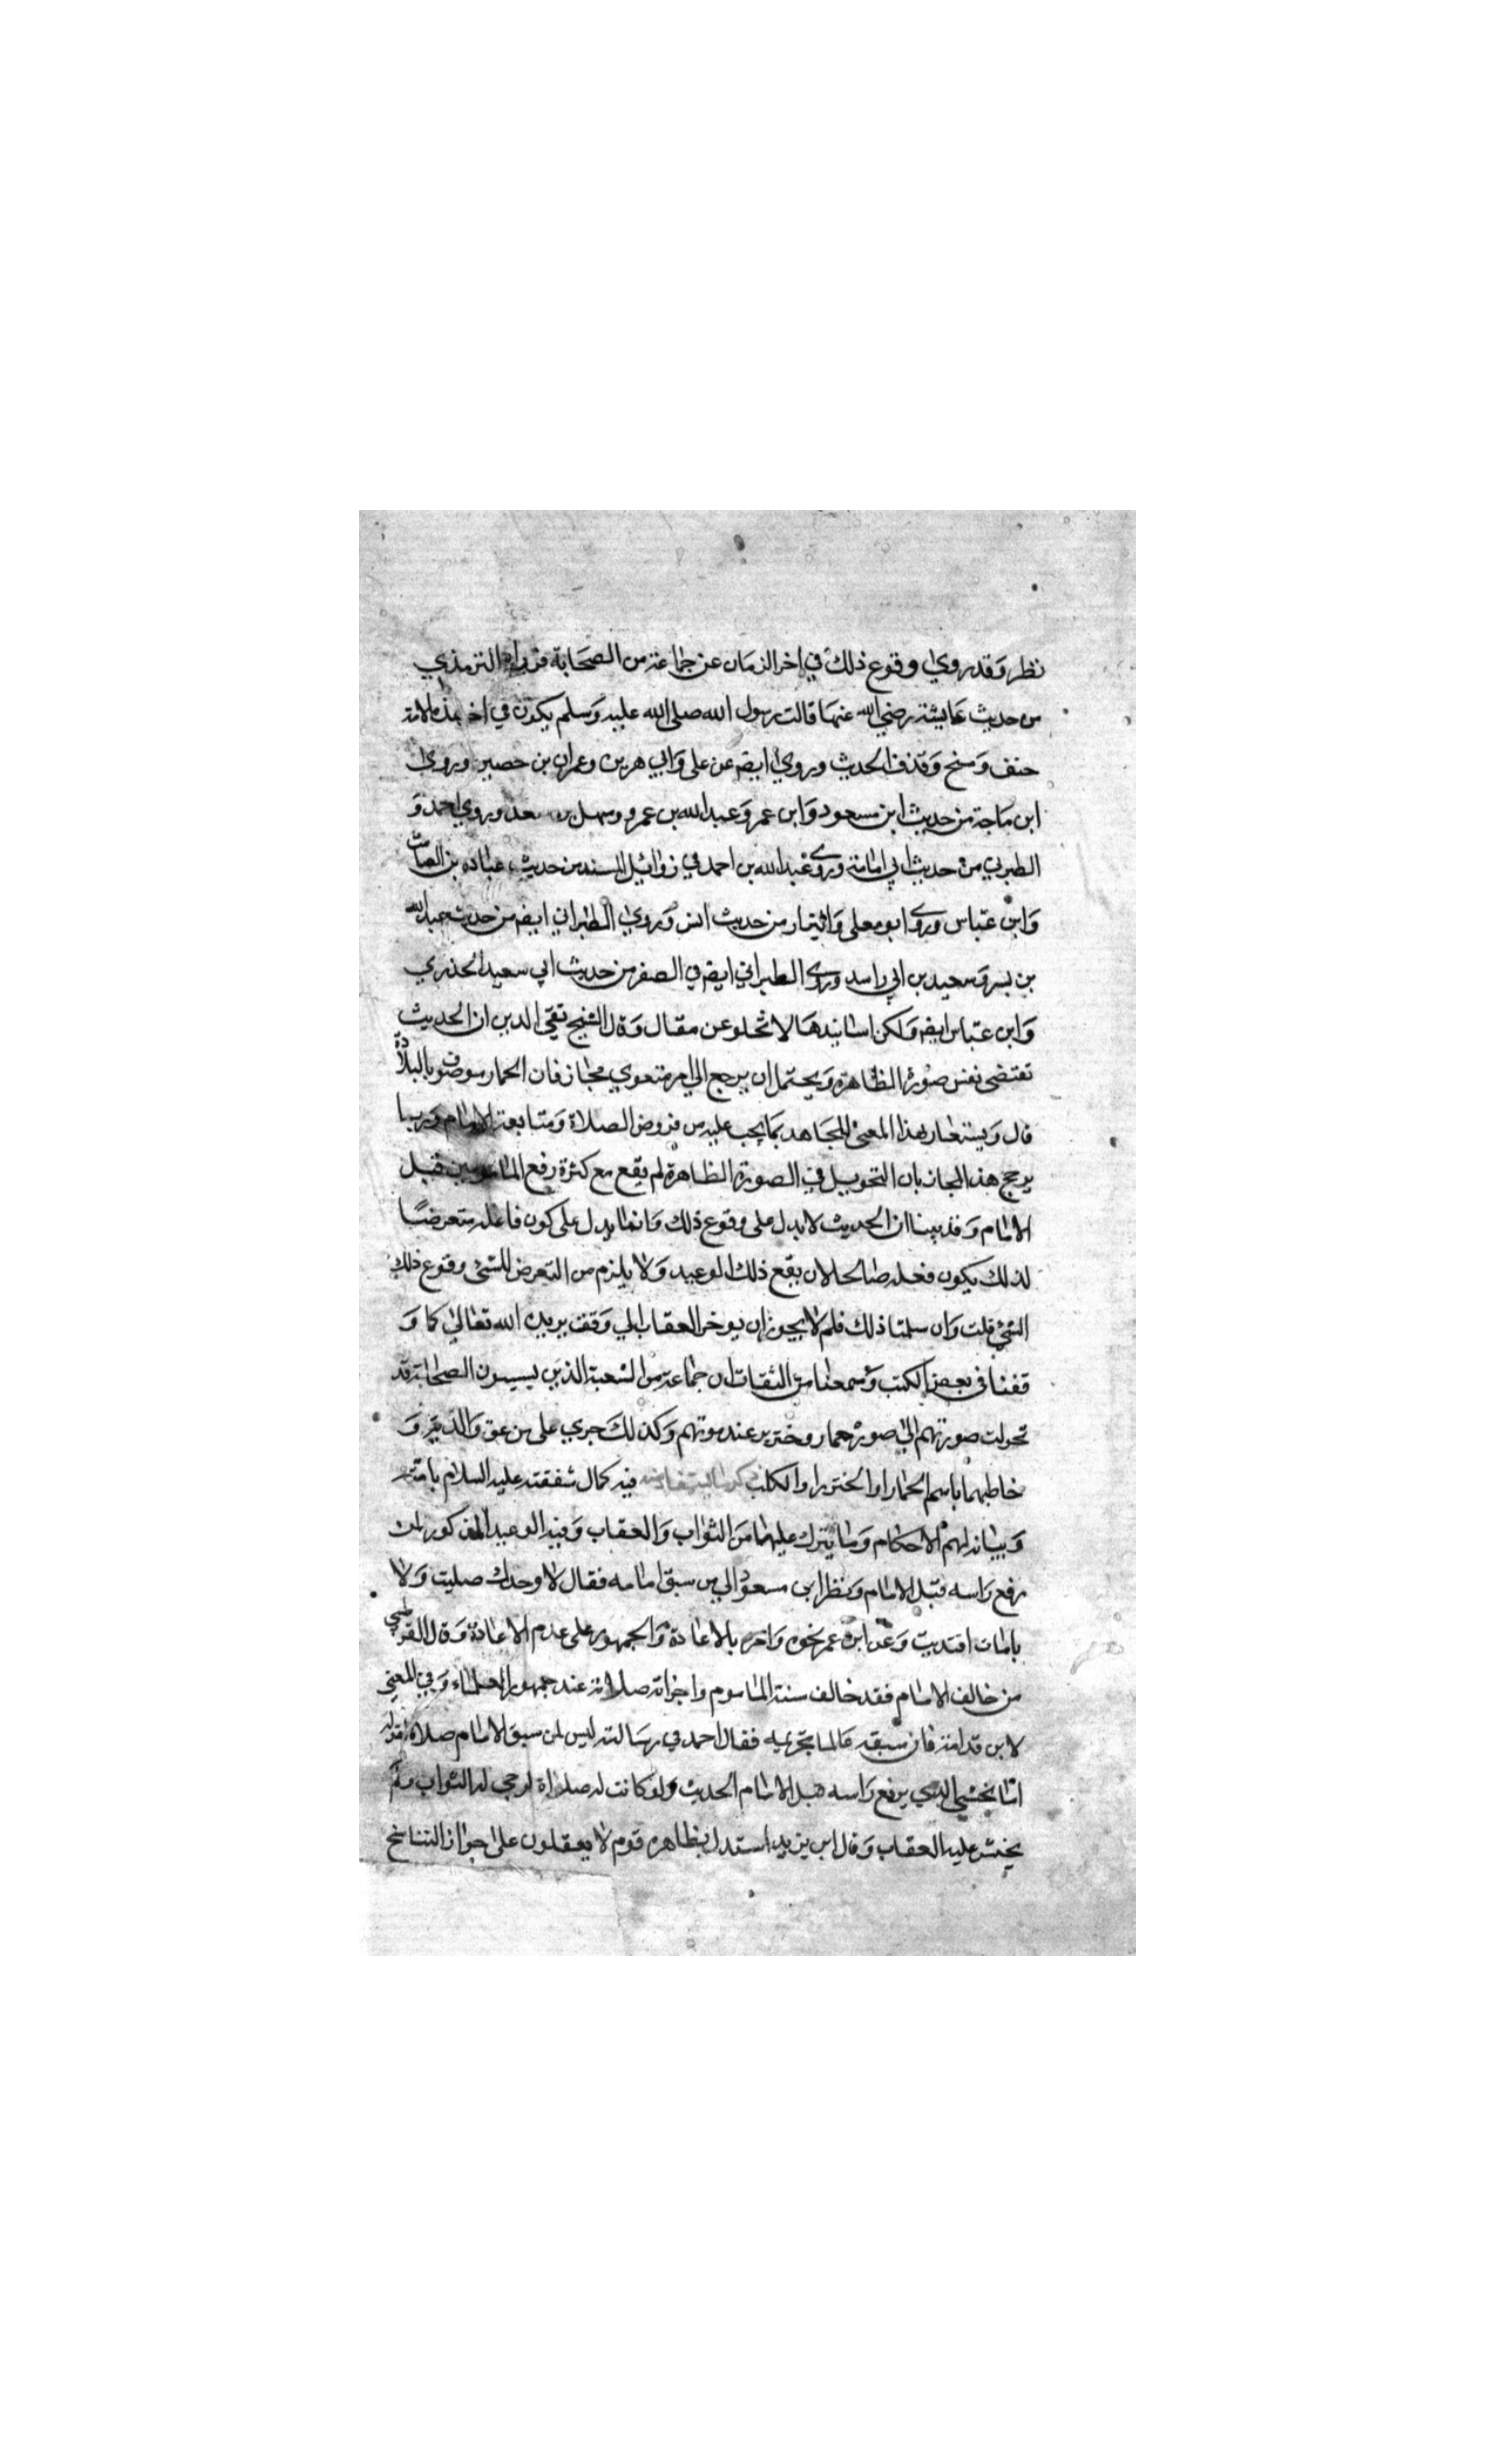 نظر وقد روي وقوع ذلك في اخر الزمان عن جماعة من الصحابة فرواه الترمذي
من حديث عايشة رضي الله عنها قالت رسول الله صلى الله عليه وسلم يكون في اخر هذه الامة
خنف ومسخ وقذف الحديث وروي ايضه عن على وابي هريره وعمران بن حصين وروي
ابن ماجة من حديث ابن مسعود وابن عمر وعبد الله بن عمرو وسهل بن سعد وروي احمد و
الطبري من حديث ابي امامة وروى عبد الله بن احمد في زوائد المسند من حديث عباده بن الصامت
وابن عباس وروى ابو معلى من حديث انس وروي الطبراني ايضه من حديث عبد الله
بن بسر وسعيد بن ابي راسد وروى الطبراني ايضه في الصغر من حديث ابي سعيد الخذري
وابن عباس ايضه ولكن اسانيدها لا تخلو عن مقال وقال الشيخ تقي الدين ان الحديث
تقتضى تغير صورة الظاهرة ويحتمل ان يرجع الي امر معنوي مجاز فان الحمار موصوف بالبلادة
قال ويستعار هذا المعنى للجاهد بما يجب عليه من فروض الصلاة ومتابعة الامام وربما
يرجح هذا المجاز بان التحويل في الصورة الظاهرة لم يقع مع كثرة رفع المامومين قبل
الامام وقد بينا ان الحديث لا يدل على وقوع ذلك وانما يدل على كون فاعله متعرضا
لذلك بكون فعله صالحا لان يقع ذلك الوعيد ولا يلزم من التعرض للشي وقوع ذلك
الشي قلت وان سلمنا ذلك فلم لا يجوز ان يوخر العقاب الي وقت يريده الله تعالى كما و
قفنا في بعض الكتب وسمعنا من الثقات ان جماعة من الشعبة الذين يسبون الصحابة قد
تحولت صورتهم الى صورة حمار وخترير عند موتهم وكذلك جري على من عق والديه و
خاطبهما باسم الحمار او الخنزير او الكلب ذكر ما يستفاد منه فيه كمال شفقته عليه السلام بامته
وبيانه لهم الاحكام وما يترك عليهما من الثواب والعقاب وفيه الوعيد المذكور لمن
رفع راسه قبل الامام ونظر ابن مسعود الي من سبق امامه فقال لا وحدك صليت ولا
بامامك اقتديت وعن ابن عمر نحوه وامره بالاعادة والجمهور على عدم الاعادة وقال القرطبي
من خالف الامام فقد خالف سنة الماموم واجزاته صلاته عند جمهور العلماء وفي المغني
لابن قدامة فان سبقه عالما بتحريمه فقال احمد في رسالته ليس لمن سبق الامام صلاة لقوله
اما يخشى الذي يرفع راسه قبل الامام الحديث ولو كانت له صلاة لرجي له الثواب ولم
يخش عليه العقاب وقال ابن يزيد استدل بظاهره قوم لا يعقلون على جواز التناسخ